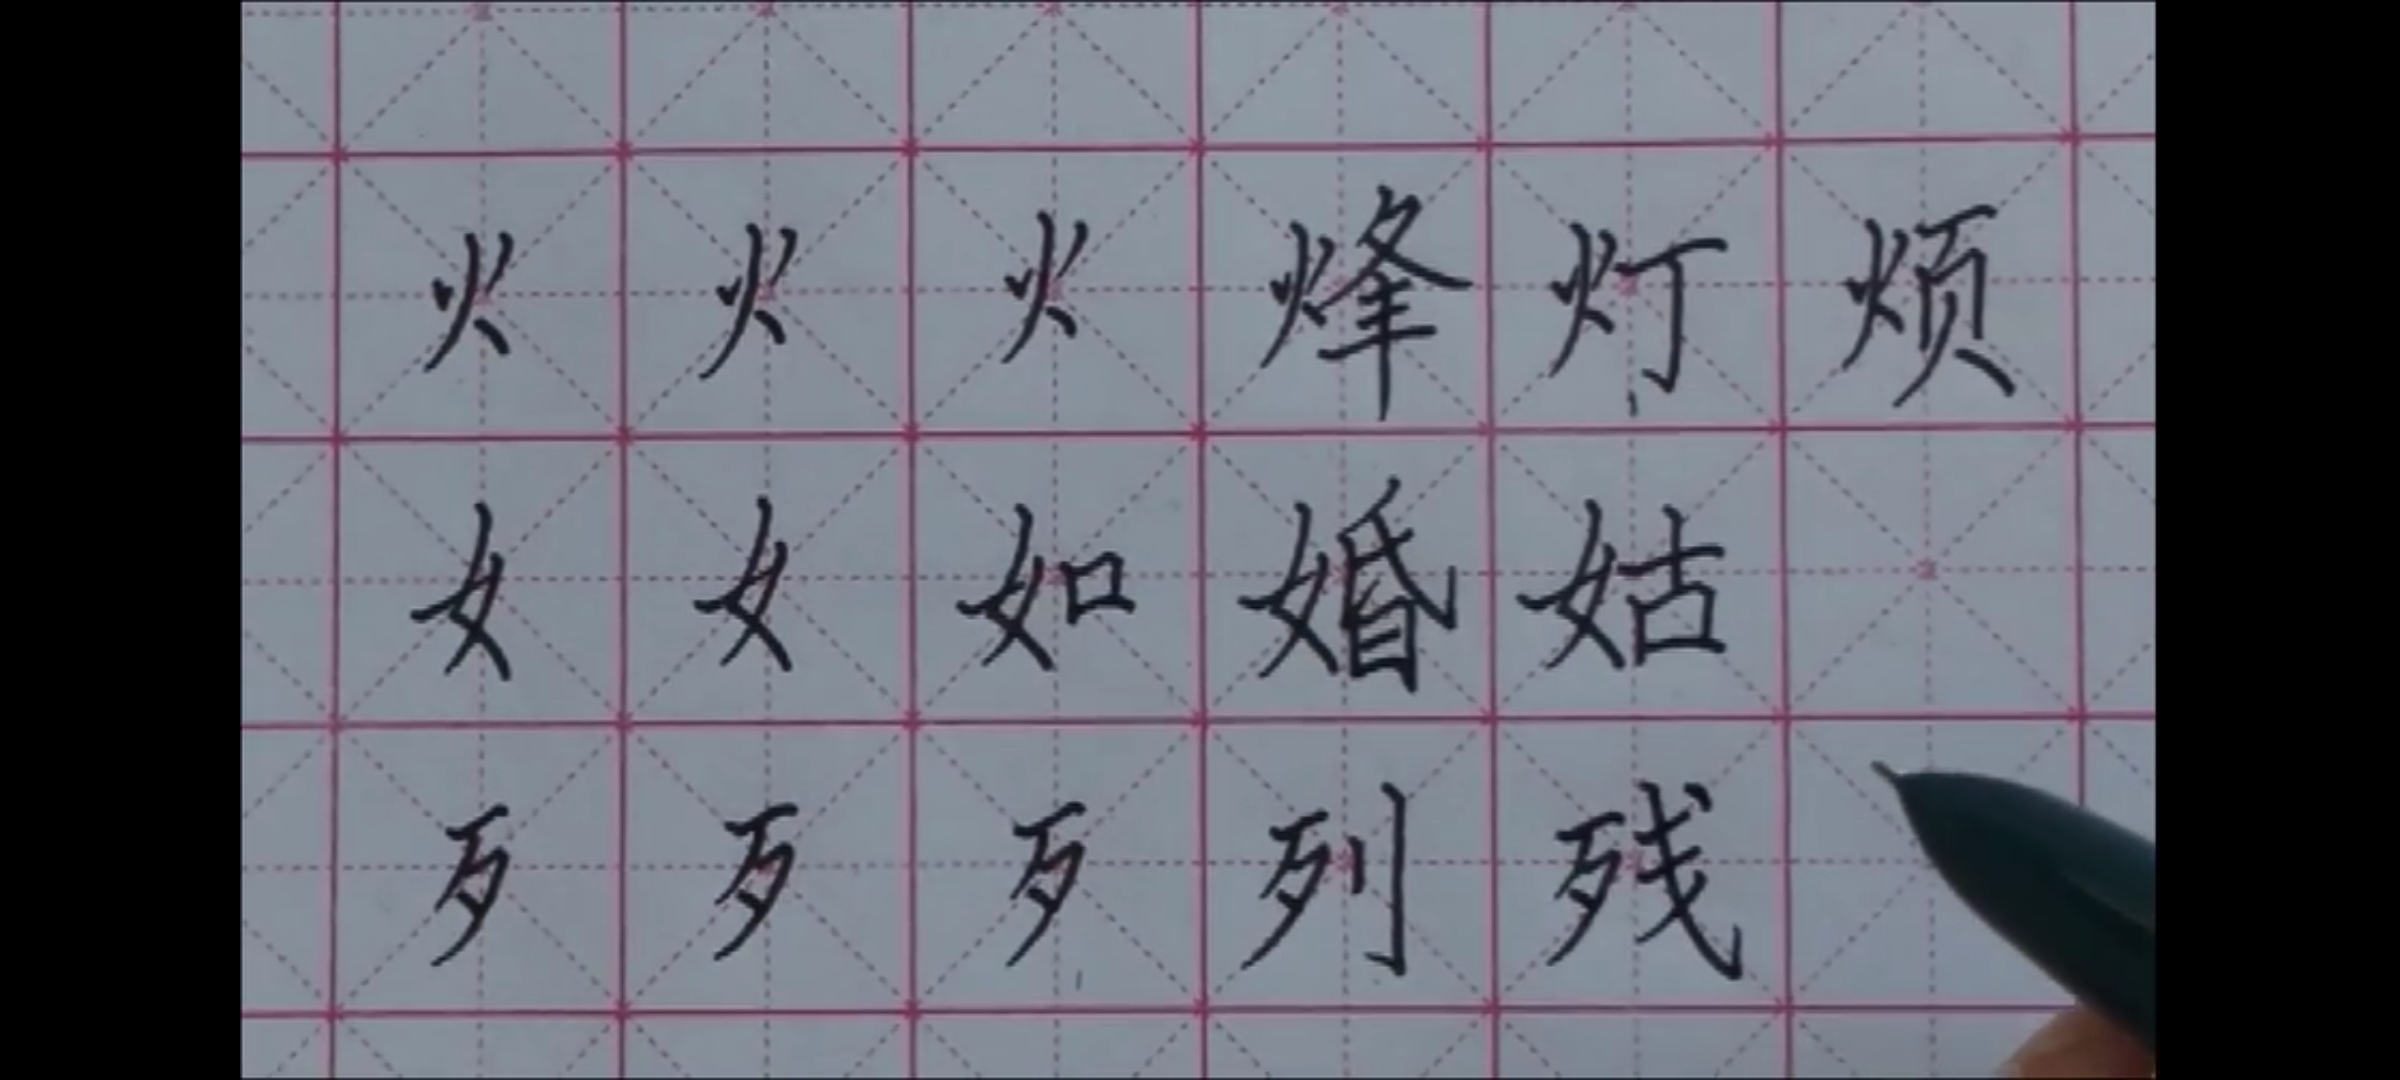 火火火烽灯烦
女女如婚姑
歹歹歹列残